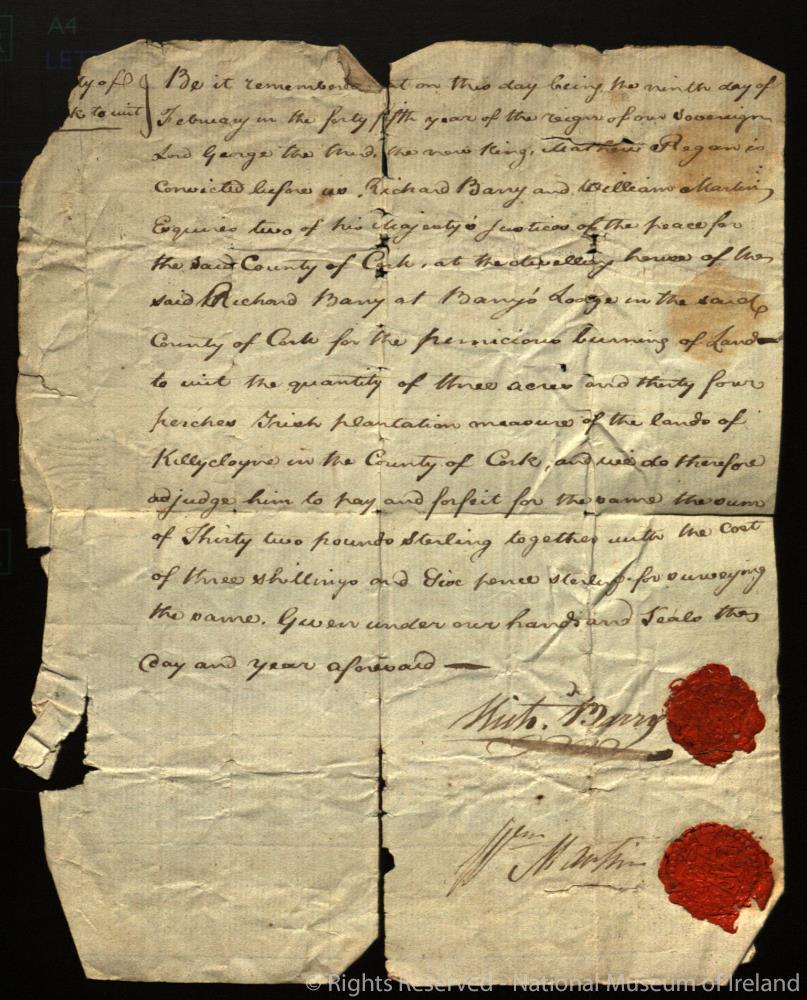 A4
ty of } Be it remembered that on this day being the ninth day of
k to wit February in the forty fifth year of the reign of our Sovereign
Lord George the third, the now King, Mathew Regan is
Convicted before us Richard Barry and William Martin
Esquires two of his Majesty's Justices of the peace for
the said County of Cork, at the dwelling house of the
said Richard Barry at Barry's Lodge in the said
County of Cork for the pernicious burning of Land
to wit the quantity of three acres and thirty four
perches Irish plantation measure of the lands of
Killycloyne in the County of Cork, and we do therefore
adjudge him to pay and forfeit for the same the sum
of Thirty two pounds Sterling together with the Cost
of three shillings and Six pence sterling for surveying
the same. Given under our hands and Seals the
Day and year aforesaid —
Richd. Barry
Wm Martin
© Rights Reserved - National Museum of Ireland